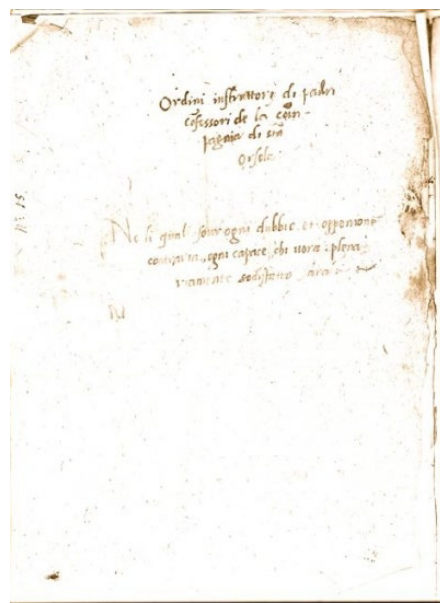 Ordini instruttory di padri
cōfessori de la com-
pagnia di sta
Orsola
Ne li quali sovr ogni dubbio et oppositione
contraria, ogni capace chi vora plena
riamente sodisfatto sara
Nº 15